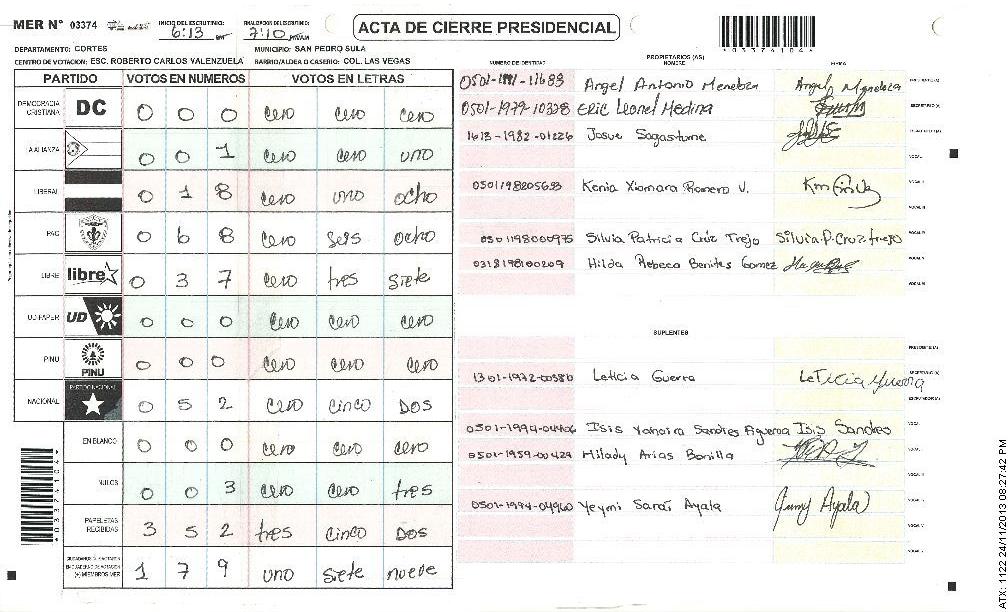 MER N° 03374
INICIO DEL ESCRUTINIO: 6:13
FINALIZACION DEL ESCRUTINIO: 7:10
ACTA DE CIERRE PRESIDENCIAL
*03374104*
DEPARTAMENTO: CORTES MUNICIPIO: SAN PEDRO SULA
CENTRO DE VOTACION: ESC. ROBERTO CARLOS VALENZUELA BARRIO/ALDEA O CASERIO: COL. LAS VEGAS
PARTIDO VOTOS EN NUMEROS VOTOS EN LETRAS
DEMOCRACIA CRISTIANA DC 0 0 0 cero cero cero
ALIANZA 0 0 1 cero cero uno
LIBERAL 0 1 8 cero uno ocho
PAC 0 6 8 cero seis ocho
LIBRE libre 0 3 7 cero tres siete
UD FAPER UD 0 0 0 cero cero cero
PINU PINU 0 0 0 cero cero cero
NACIONAL PARTIDO NACIONAL 0 5 2 cero cinco dos
EN BLANCO 0 0 0 cero cero cero
NULOS 0 0 3 cero cero tres
PAPELETAS RECIBIDAS 3 5 2 tres cinco dos
(+) MIEMBROS MER 1 7 9 uno siete nueve
NUMERO DE IDENTIDAD PROPIETARIOS (AS) NOMBRE FIRMA
Angel Antonio Mendoza Angel Mendoza PRESIDENTE(A)
0501-1979-10328 Eric Leonel Medina SECRETARIO(A)
1613-1982-01226 Josue Sagastume
VOCAL I
0501198205693 Kenia Xiomara Romero V.
0501198000975 Silvia Patricia Cruz Trejo Silvia P. Cruz trejo
0318198100209 Hilda Rebeca Benites Gomez
SUPLENTES
PRESIDENTE(A)
1301-1972-00380 Leticia Guerra Leticia Guerra SECRETARIO(A)
ESCRUTADOR(A)
0501-1994-04406 Isis Yahaira Sandres Figueroa Isis Sandres
0501-1959-00429 Milady Arias Bonilla
0501-1994-04960 Yeymi Sarai Ayala Yeimy Ayala
ATX: 1122 24/11/2013 08:27:42 PM